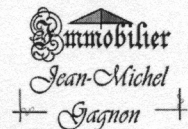 Immobilier
Jean-Michel
Gagnon